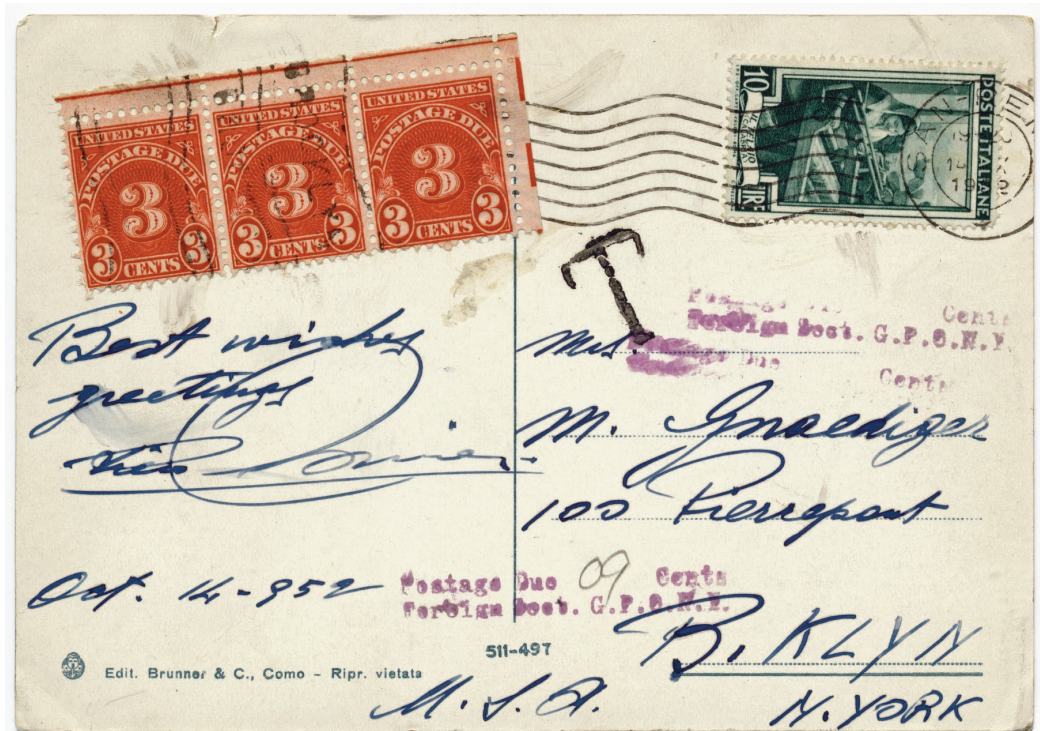 UNITED STATES
POSTAGE DUE
3
3 CENTS 3
UNITED STATES
POSTAGE DUE
3
3 CENTS 3
UNITED STATES
POSTAGE DUE
3
3 CENTS 3
10
LIRE
POSTE ITALIANE
T
Postage Cents
Foreign Sect. G.P.O.N.Y.
Due Cents
Best wishes
greetings
Mrs.
M. Gnaediger
100 Pierrepont
B. KLYN
N. YORK
U. S. A.
Oct. 14-952
Postage Due 09 Cents
Foreign Sect. G.P.O.N.Y.
511-497
Edit. Brunner & C., Como - Ripr. vietata